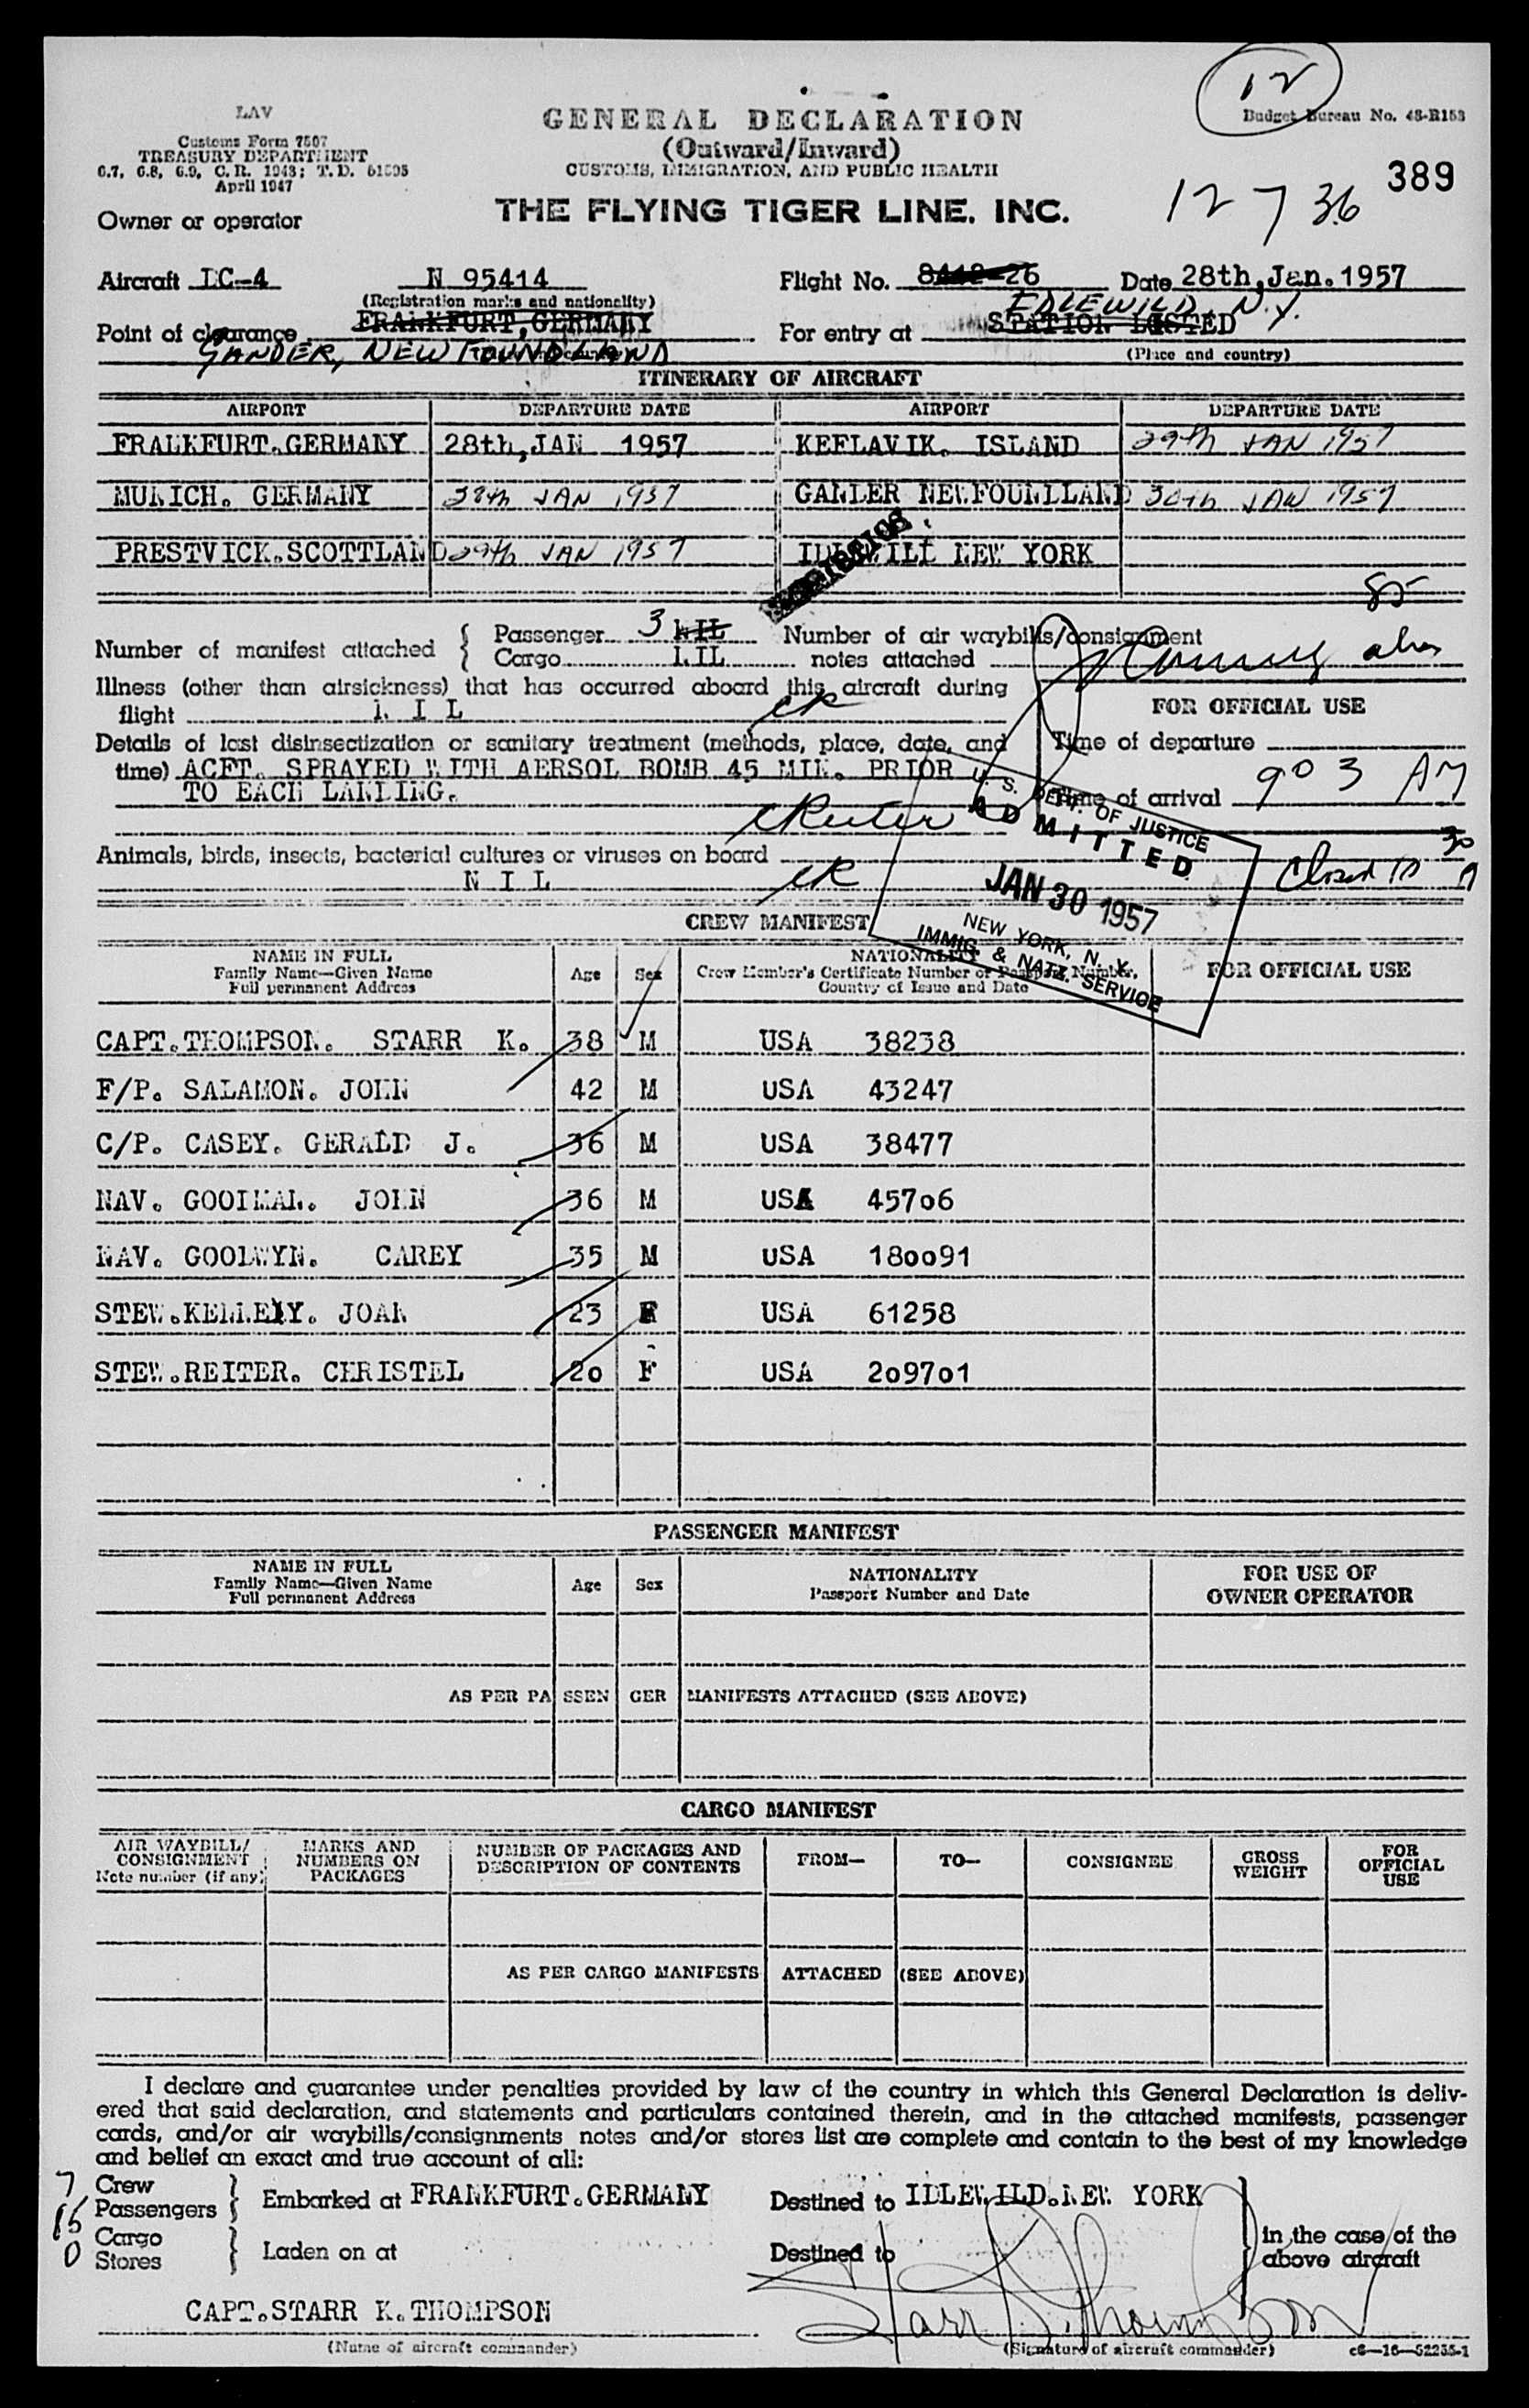 12
LAV
Customs Form 7507
TREASURY DEPARTMENT
6.7, 6.8, 6.9, C. R. 1943; T. D. 51505
April 1947
GENERAL DECLARATION
(Outward/Inward)
CUSTOMS, IMMIGRATION, AND PUBLIC HEALTH
Budget Bureau No. 48-R153
389
12 7 36
Owner or operator
THE FLYING TIGER LINE. INC.
Aircraft DC-4 N 95414 Flight No. 26 Date 28th, Jan. 1957
(Registration marks and nationality)
IDLEWILD, N.Y.
Point of clearance FRANKFURT, GERMANY For entry at STATION LISTED
GANDER, NEWFOUNDLAND (Place and country)
ITINERARY OF AIRCRAFT
AIRPORT DEPARTURE DATE AIRPORT DEPARTURE DATE
FRANKFURT.GERMANY 28th, JAN 1957 KEFLAVIK. ISLAND 29th JAN 1957
MUNICH. GERMANY 28th JAN 1957 GANDER NEWFOUNDLAND 30th JAN 1957
PRESTVICK.SCOTTLAND 29th JAN 1957 IDLEWILD NEW YORK
85
Number of manifest attached { Passenger 3 NIL Number of air waybills/consignment
Cargo NIL notes attached
Illness (other than airsickness) that has occurred aboard this aircraft during
flight N I L CR
FOR OFFICIAL USE
Details of last disinsectization or sanitary treatment (methods, place, date, and
time) ACFT. SPRAYED WITH AERSOL BOMB 45 MIN. PRIOR
TO EACH LANDING.
CReiter
Time of departure
Time of arrival 9 03 AM
Animals, birds, insects, bacterial cultures or viruses on board
N I L CR
Closed 10 30 A
U. S. DEPT. OF JUSTICE
ADMITTED
JAN 30 1957
NEW YORK, N. Y.
IMMIG. & NATZ. SERVICE
CREW MANIFEST
NAME IN FULL
Family Name—Given Name
Full permanent Address
Age Sex
NATIONALITY
Crew Member's Certificate Number or Passport Number,
Country of Issue and Date
FOR OFFICIAL USE
CAPT.THOMPSON. STARR K. 38 M USA 38238
F/P. SALAMON. JOHN 42 M USA 43247
C/P. CASEY. GERALD J. 36 M USA 38477
NAV. GOODMAN. JOHN 36 M USA 45706
NAV. GOODWYN. CAREY 35 M USA 180091
STEW. JOAN 23 F USA 61258
STEW.REITER. CHRISTEL 20 F USA 209701
PASSENGER MANIFEST
NAME IN FULL
Family Name—Given Name
Full permanent Address
Age Sex
NATIONALITY
Passport Number and Date
FOR USE OF
OWNER OPERATOR
AS PER PASSENGER MANIFESTS ATTACHED (SEE ABOVE)
CARGO MANIFEST
AIR WAYBILL/
CONSIGNMENT
Note number (if any)
MARKS AND
NUMBERS ON
PACKAGES
NUMBER OF PACKAGES AND
DESCRIPTION OF CONTENTS
FROM— TO— CONSIGNEE
GROSS
WEIGHT
FOR
OFFICIAL
USE
AS PER CARGO MANIFESTS ATTACHED (SEE ABOVE)
I declare and guarantee under penalties provided by law of the country in which this General Declaration is deliv-
ered that said declaration, and statements and particulars contained therein, and in the attached manifests, passenger
cards, and/or air waybills/consignments notes and/or stores list are complete and contain to the best of my knowledge
and belief an exact and true account of all:
7 Crew
15 Passengers } Embarked at FRANKFURT.GERMANY Destined to IDLEWILD.NEW YORK
0 Cargo
Stores } Laden on at Destined to
in the case of the
above aircraft
CAPT.STARR K.THOMPSON Starr K. Thompson
(Name of aircraft commander) (Signature of aircraft commander) c6—16—52255-1